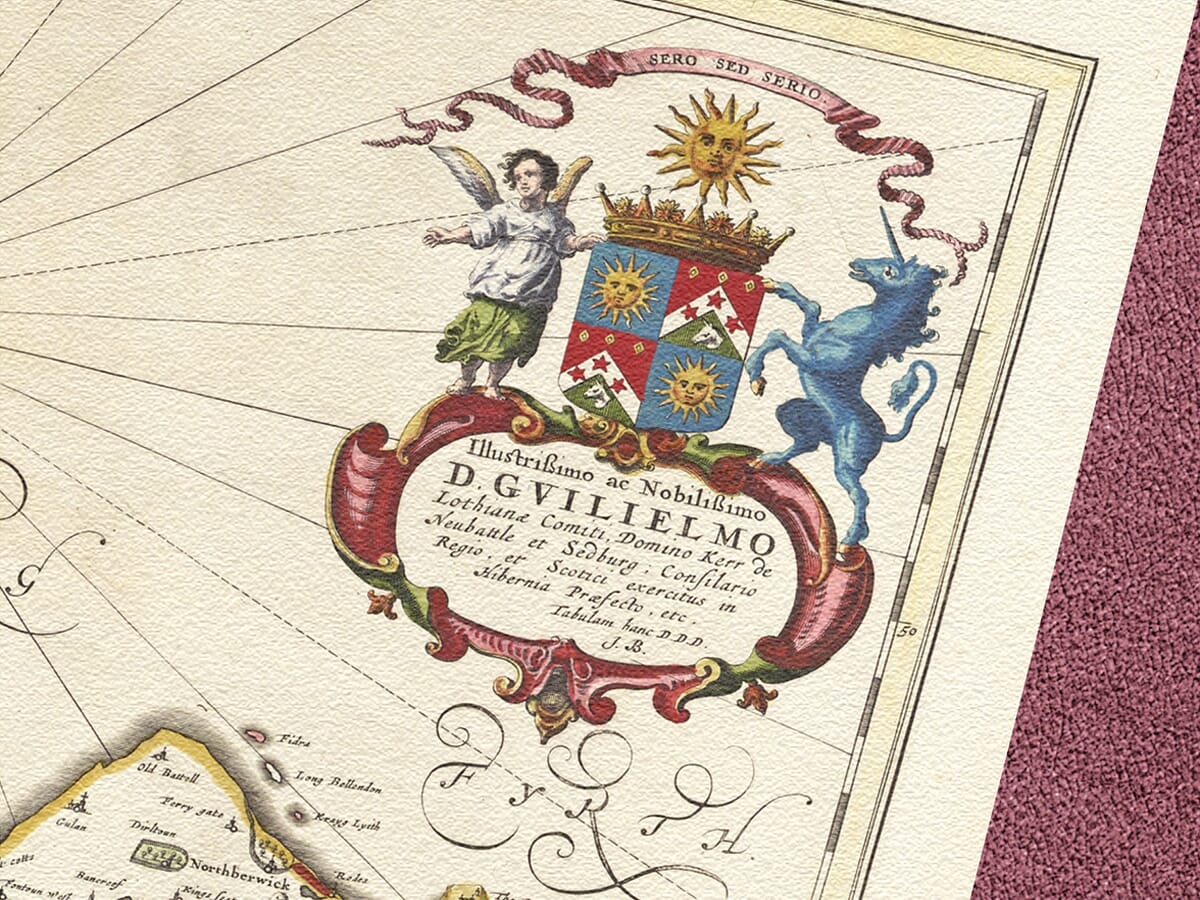 SERO SED SERIO.
Illustrißimo ac Nobilißimo
D. GVILIELMO
Lothianæ Comiti, Domino Kerr de
Neubattle et Sedburg, Consilario
Regio, et Scotici exercitus in
Hibernia Præfecto, etc.
Tabulam hanc D.D.D.
J. B.
50
G
FYRTH.
Fidra
Long Bellendon
Krayg Lyith
Old Battell
Ferry gate
Gulan
Dirltoun
Northberwick
Rodes
Bancreef
colts
Fontoun West
Kings
The